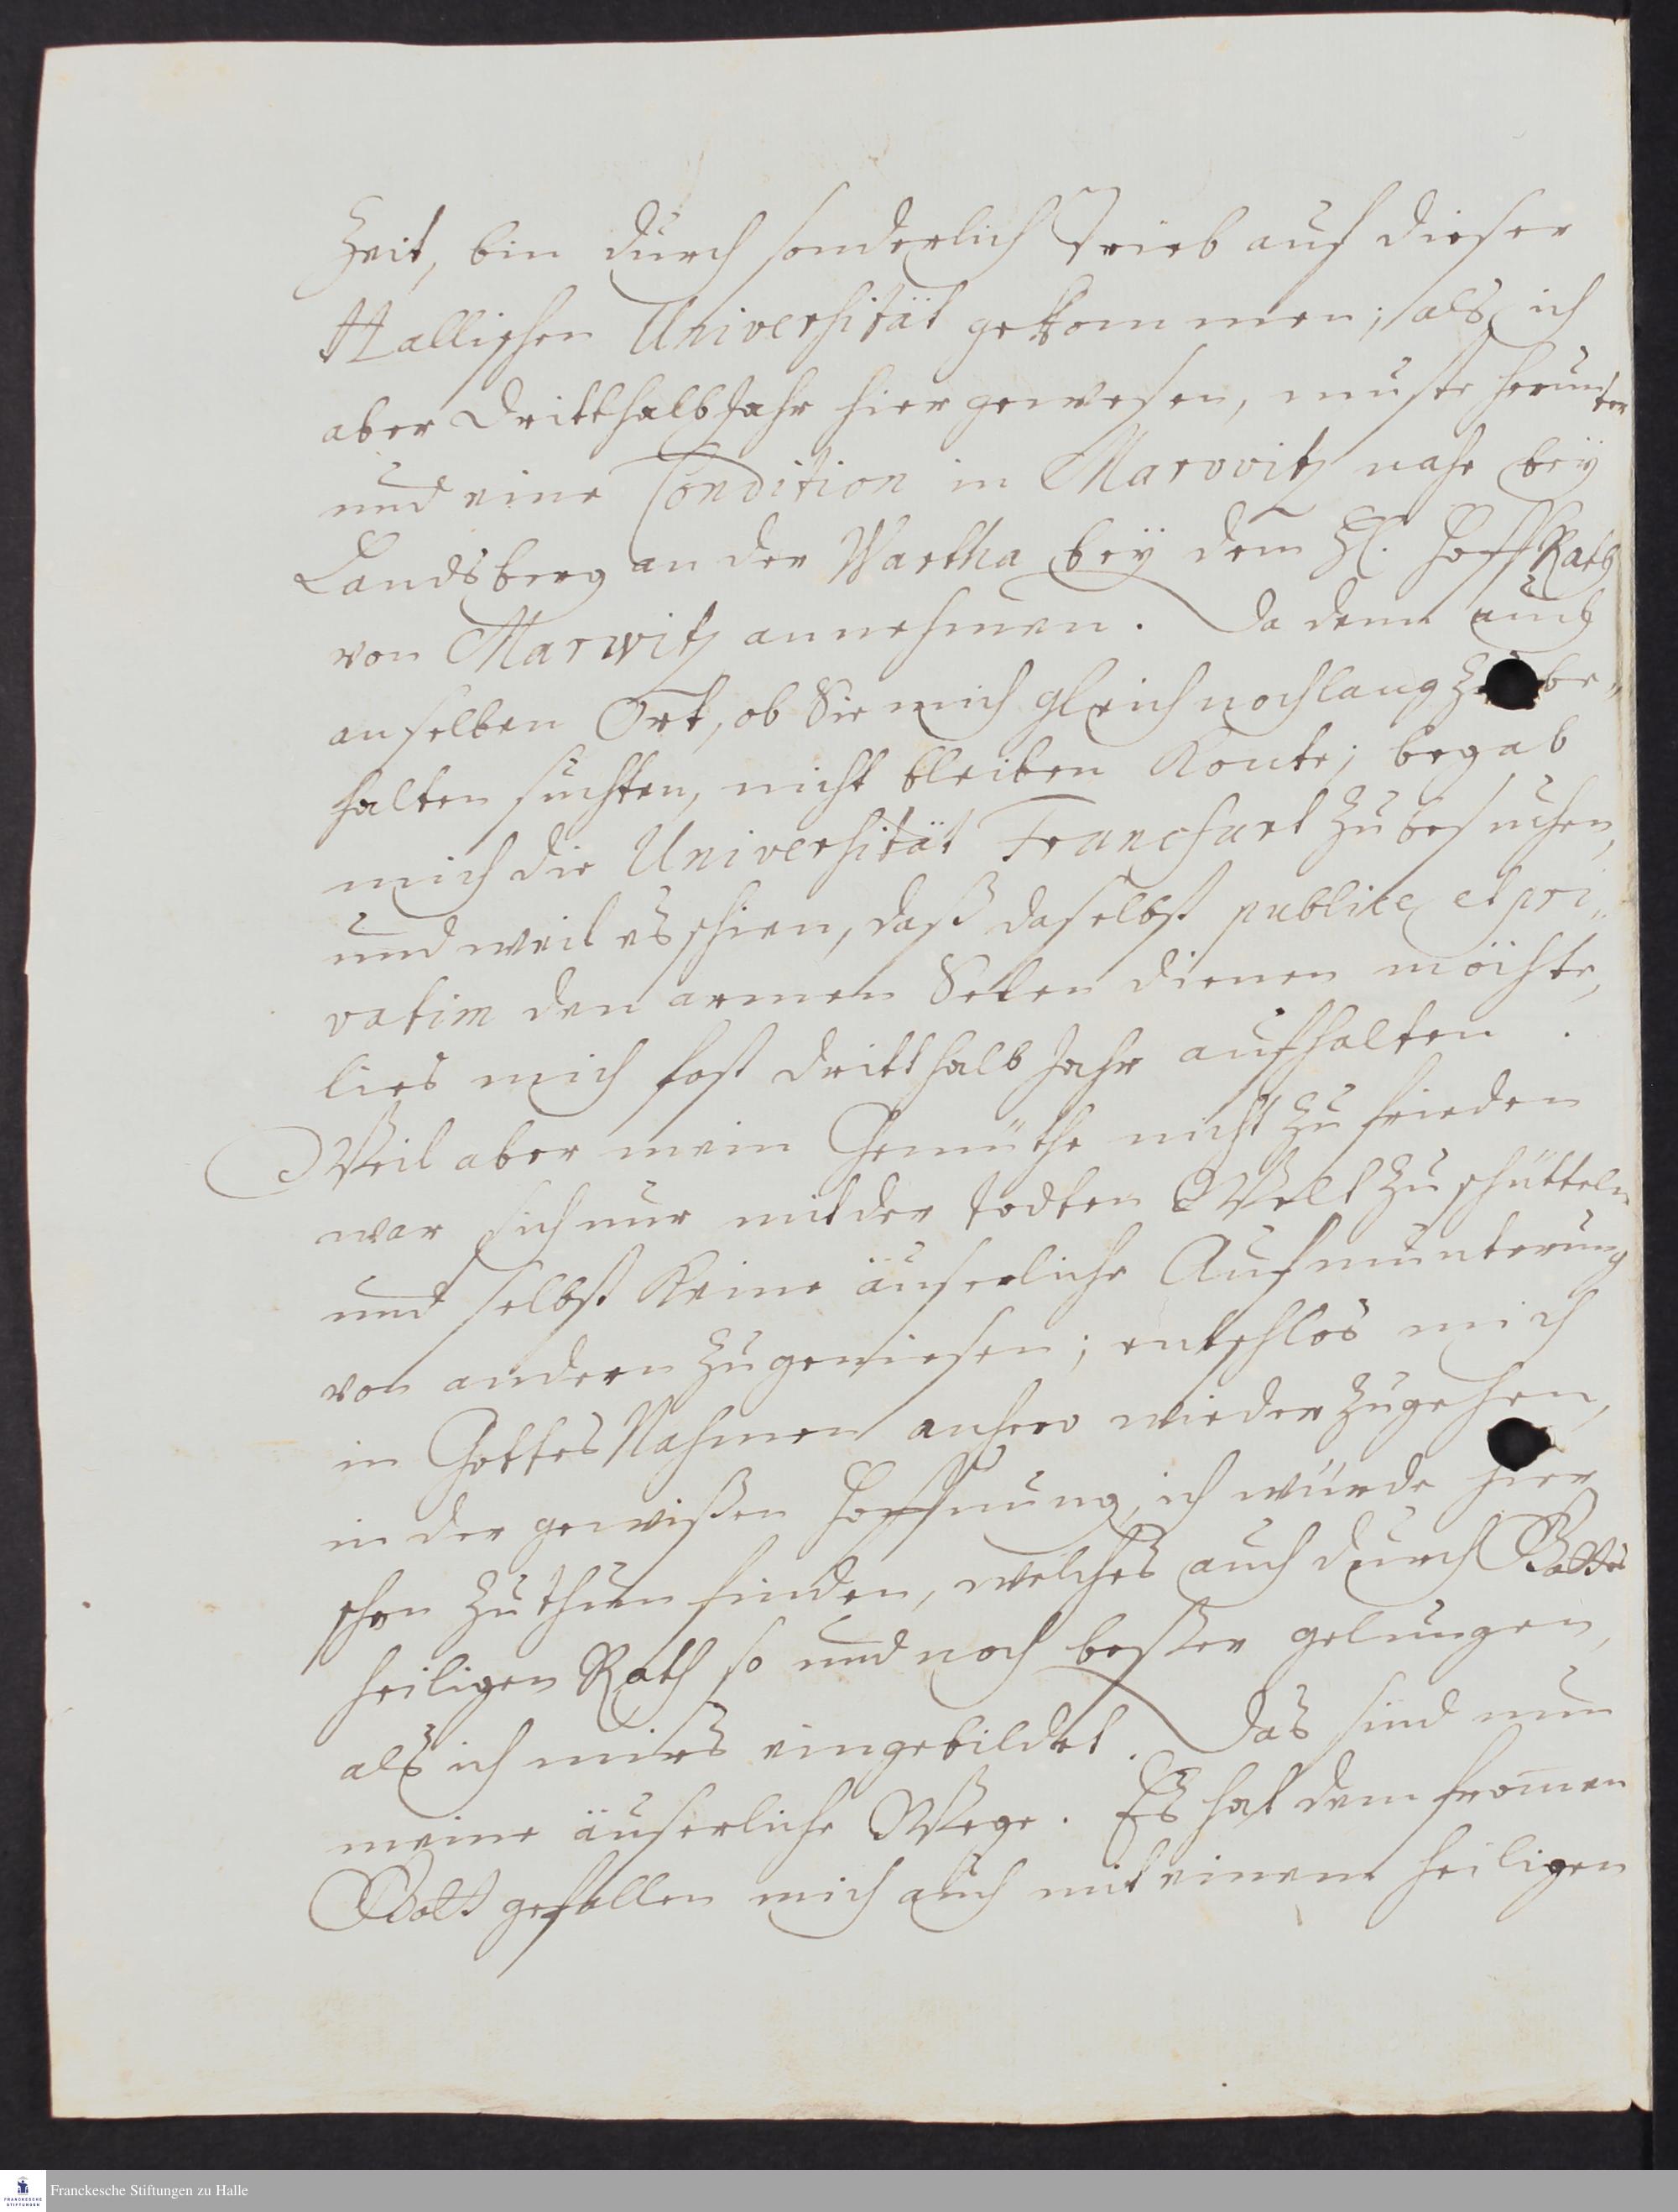 Zeit, bin durch sonderlich Trieb auf dieser
Hallischen Universität gekommen; als ich
aber dritthalb Jahr hier gewesen, muste herunter
und eine Condition in Marwitz nahe bey
Landsberg an der Wartha bey dem H. Hoff Rath
von Marwitz annehmen. Da denn auch
an selben Ort, ob Sie mich gleich noch lang zu be„
halten suchten, nicht bleiben konte; begab
mich die Universität Francfurt zu besuchen,
und weil es schien, daß daselbst publice et pri„
vatim den armen Selen dienen möchte,
lies mich fast dritthalb Jahr aufhalten.
Weil aber mein Gemüthe nicht zu frieden
war sich nur mit der todten Welt zu schütteln
und selbst keine äuserliche Aufmunterung
von andern zu geniesen; entschlos mich
in Gottes Nahmen anhero wieder zugehen,
in der gewißen Hoffnung, ich würde hier
schon zu thun finden, welches auch durch Gottes
heiligen Rath so und noch besser gelungen,
als ich mirs eingebildet. Das sind nun
meine äuserliche Wege. Es hat dem fromen
Gott gefallen mich auch mit einem heiligen
Franckesche Stiftungen zu Halle